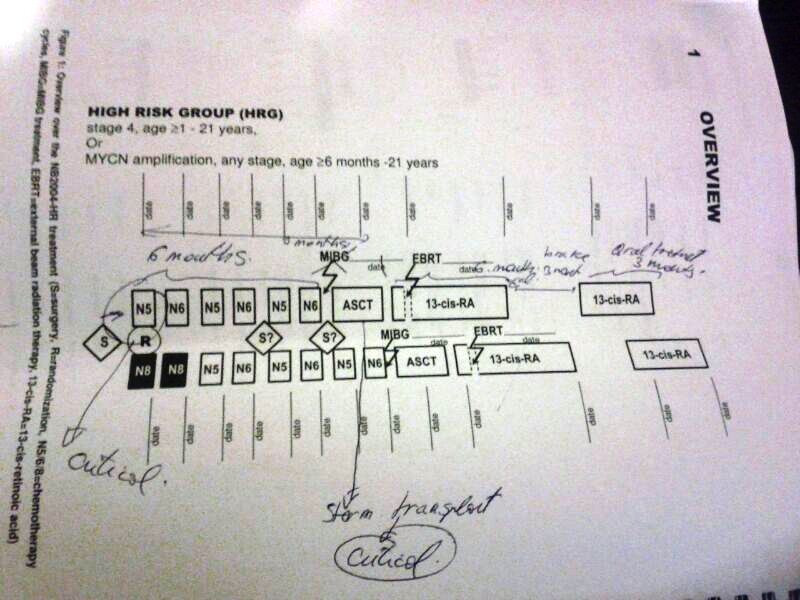 1
OVERVIEW
HIGH RISK GROUP (HRG)
stage 4, age ≥1 - 21 years,
Or
MYCN amplification, any stage, age ≥6 months -21 years
date date date date date date date date date date date
6 months.
months
MIBG
date
EBRT
date
6 months
oral
3 months.
N5 N6 N5 N6 N5 N6 ASCT 13-cis-RA 13-cis-RA
S R S? S?
MIBG
date
EBRT
date
N8 N8 N5 N6 N5 N6 N5 N6 ASCT 13-cis-RA 13-cis-RA
date date date date date date date date date date date date
critical.
stem transplant
critical.
Figure 1: Overview over the NB2004-HR treatment (S=surgery, R=randomization, N5/6/8=chemotherapy
cycles, MIBG=MIBG treatment, EBRT=external beam radiation therapy, 13-cis-RA=13-cis-retinoic acid)